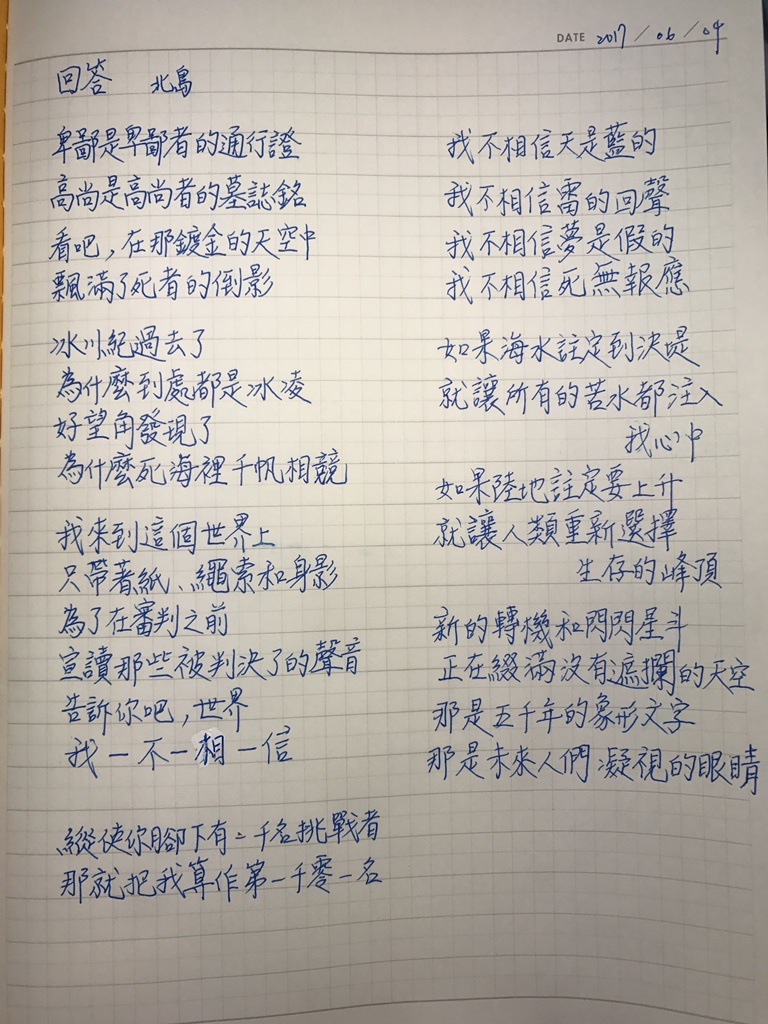 DATE 2017/06/04
回答 北島
卑鄙是卑鄙者的通行證
高尚是高尚者的墓誌銘
看吧，在那鍍金的天空中
飄滿了死者的倒影
冰川紀過去了
為什麼到處都是冰凌
好望角發現了
為什麼死海裡千帆相競
我來到這個世界上
只帶著紙、繩索和身影
為了在審判之前
宣讀那些被判決了的聲音
告訴你吧，世界
我－不－相－信
縱使你腳下有一千名挑戰者
那就把我算作第一千零一名
我不相信天是藍的
我不相信雷的回聲
我不相信夢是假的
我不相信死無報應
如果海水註定到決堤
就讓所有的苦水都注入
我心中
如果陸地註定要上升
就讓人類重新選擇
生存的峰頂
新的轉機和閃閃星斗
正在綴滿沒有遮攔的天空
那是五千年的象形文字
那是未來人們凝視的眼睛